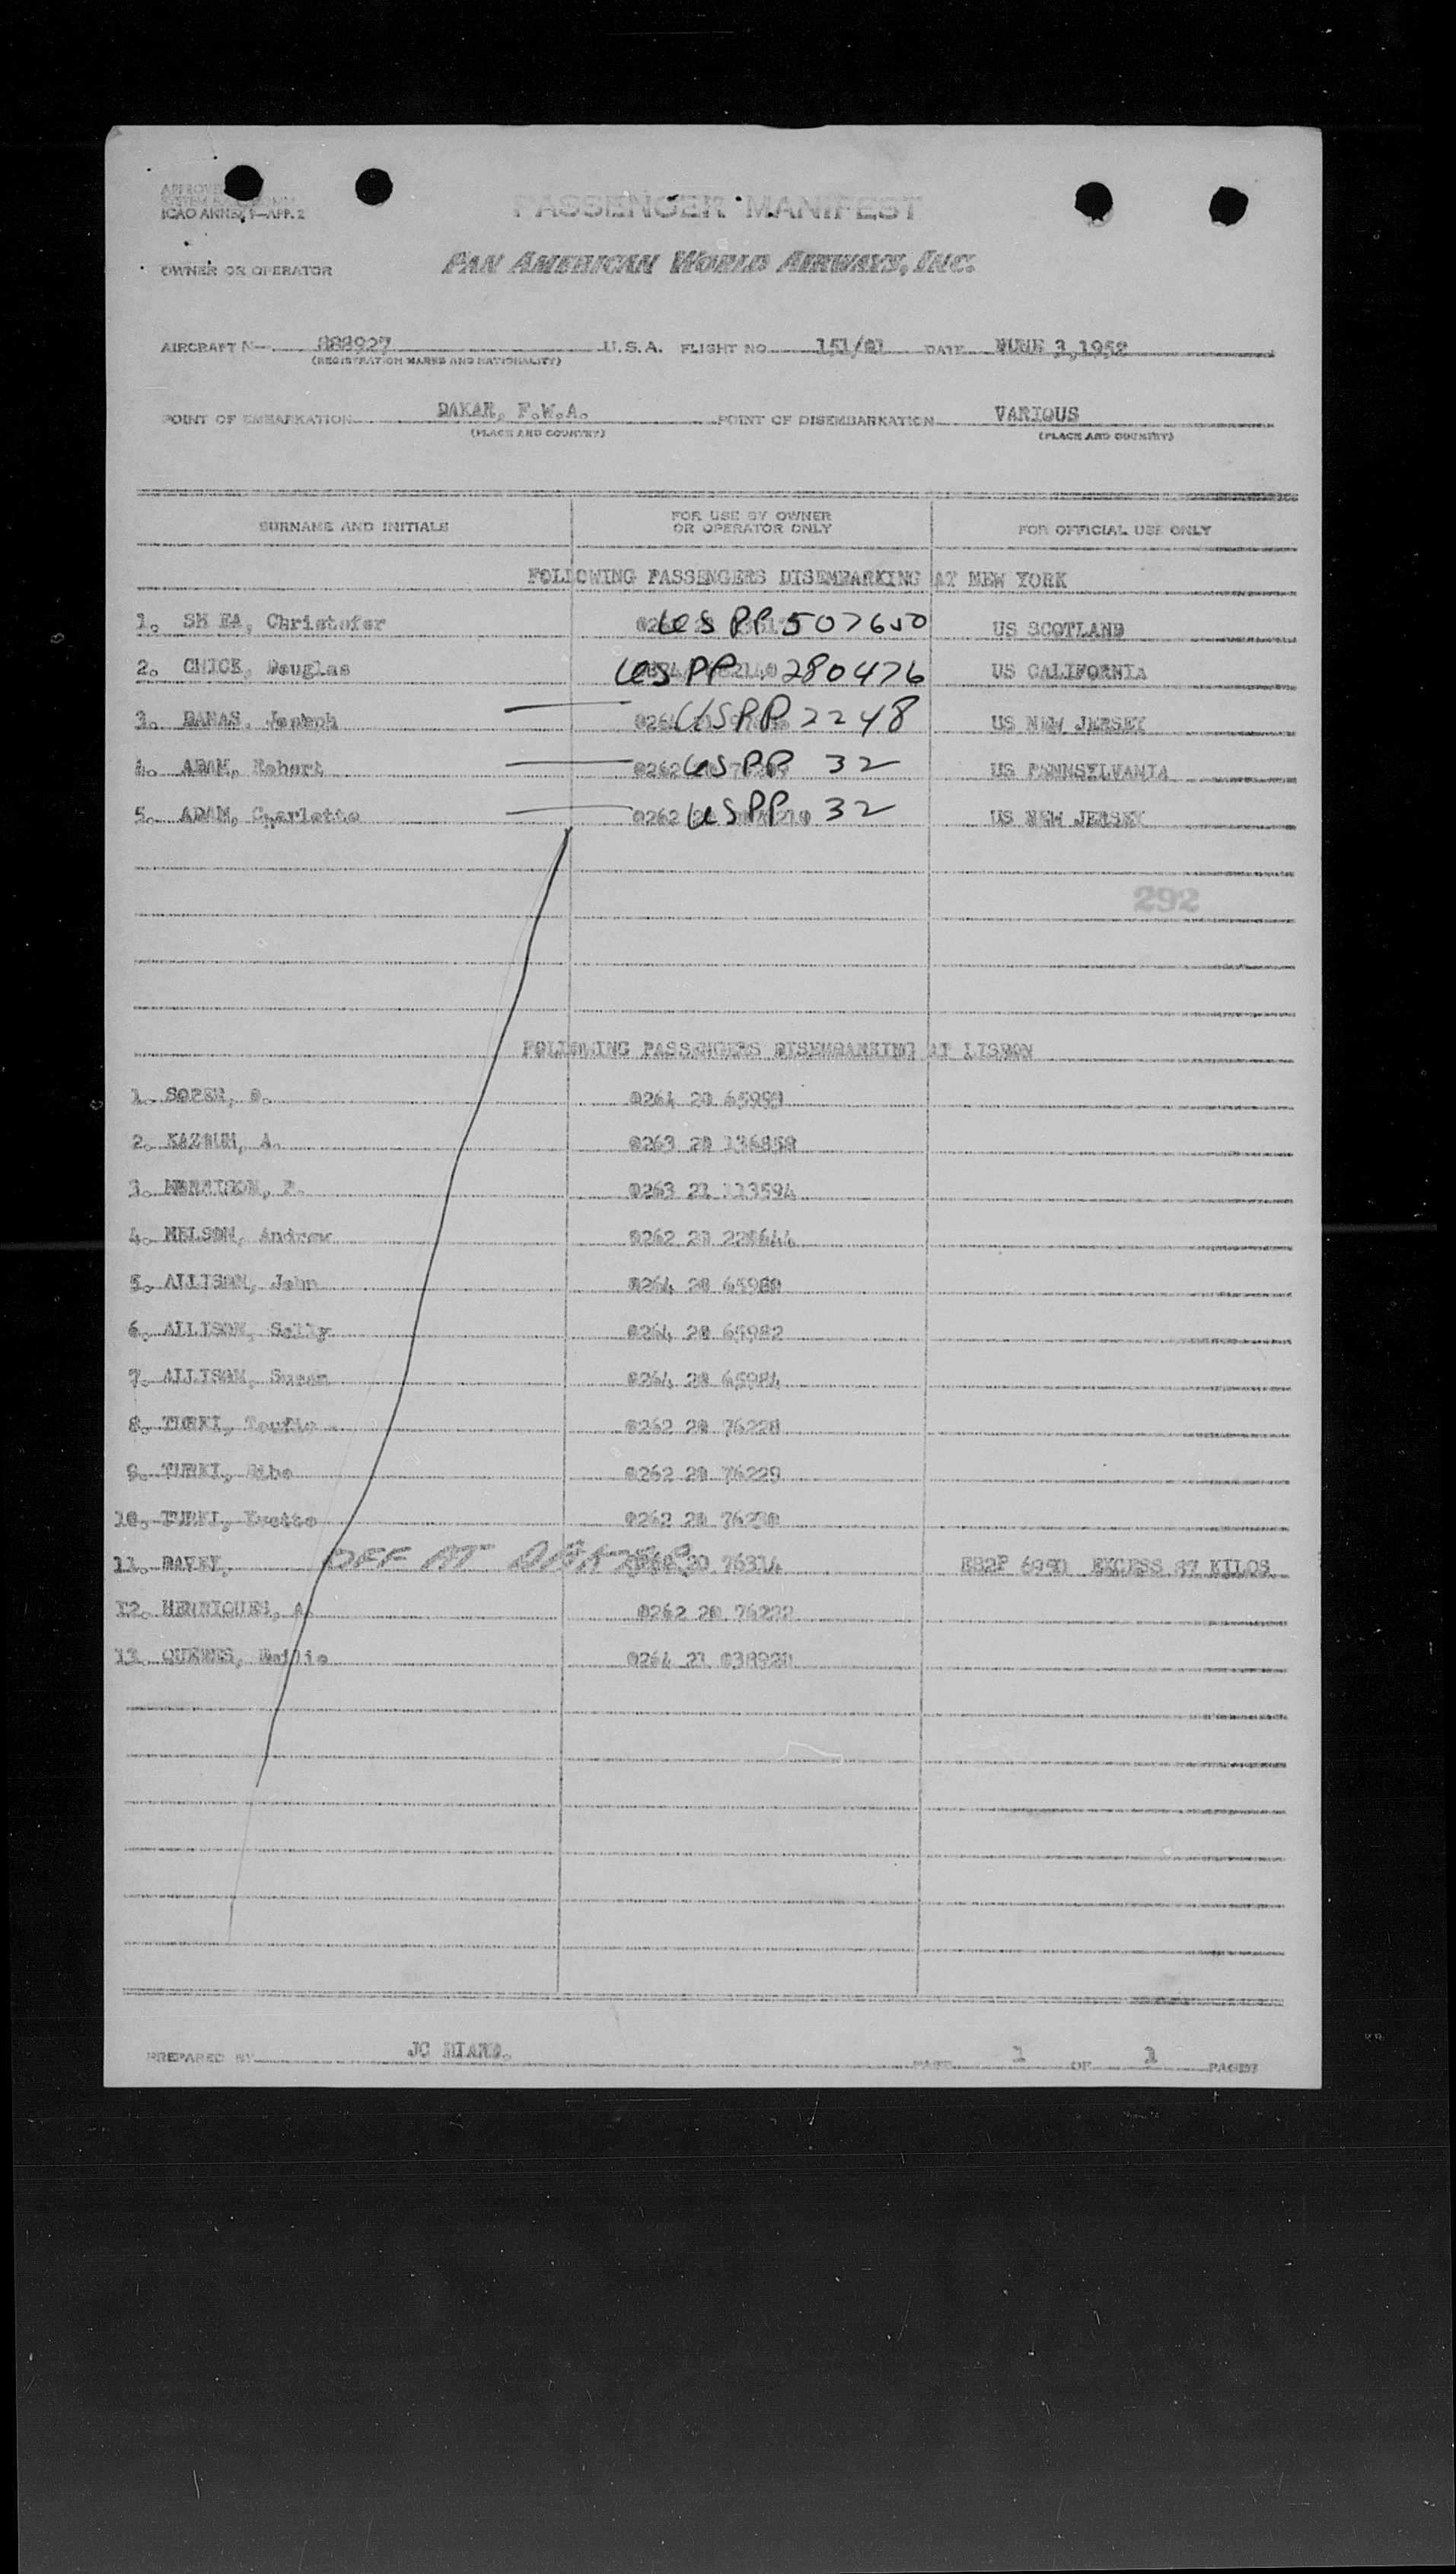 APPROVED
ICAO ANNEX 9—APP. 2
PASSENGER MANIFEST
OWNER OR OPERATOR
PAN AMERICAN WORLD AIRWAYS, INC.
AIRCRAFT N— 888927 U.S.A. FLIGHT NO. 151/01 DATE JUNE 3, 1952
(REGISTRATION MARKS AND NATIONALITY)
POINT OF EMBARKATION DAKAR, F.W.A. POINT OF DISEMBARKATION VARIOUS
(PLACE AND COUNTRY) (PLACE AND COUNTRY)
SURNAME AND INITIALS FOR USE BY OWNER OR OPERATOR ONLY FOR OFFICIAL USE ONLY
FOLLOWING PASSENGERS DISEMBARKING AT NEW YORK
1. SH EA, Christofer US PP 507650 US SCOTLAND
2. CHICK, Douglas US PP 280476 US CALIFORNIA
3. DANAS, Joseph US PP 2248 US NEW JERSEY
4. ADAM, Robert 0262 US PP 32 US PENNSYLVANIA
5. ADAM, Charlotte 0262 US PP 32 US NEW JERSEY
292
FOLLOWING PASSENGERS DISEMBARKING AT LISBON
1. SOPER, 0264 20 65999
2. A. 0263 20 136858
3. MORRISON, 0263 21 113594
4. NELSON, Andrew 0262 20
5. ALLISON, John 0264 20 65980
6. ALLISON, Sally 0264 20 65982
7. ALLISON, Susan 0264 20 65984
8. TURKI, Toufic 0262 20 76228
9. TURKI, 0262 20 76229
10. TURKI, Yvette 0262 20 76230
11. OFF AT DAKAR 20 76314 EXCESS KILOS
12. HENRIQUES, A. 0262 20 76222
13. 0264 21 038920
PREPARED BY JC PAGE 1 OF 1 PAGES